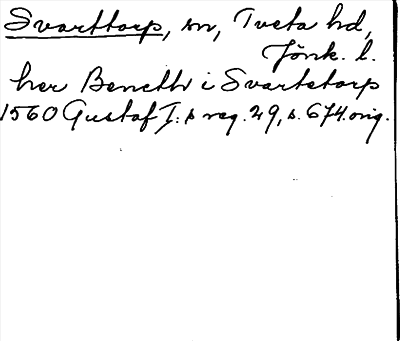 Svarttorp, sn, Tveta hd,
Jönk. l.
her Bencth i Svartetorp
1560 Gustaf I:s reg. 29, s. 674. orig.